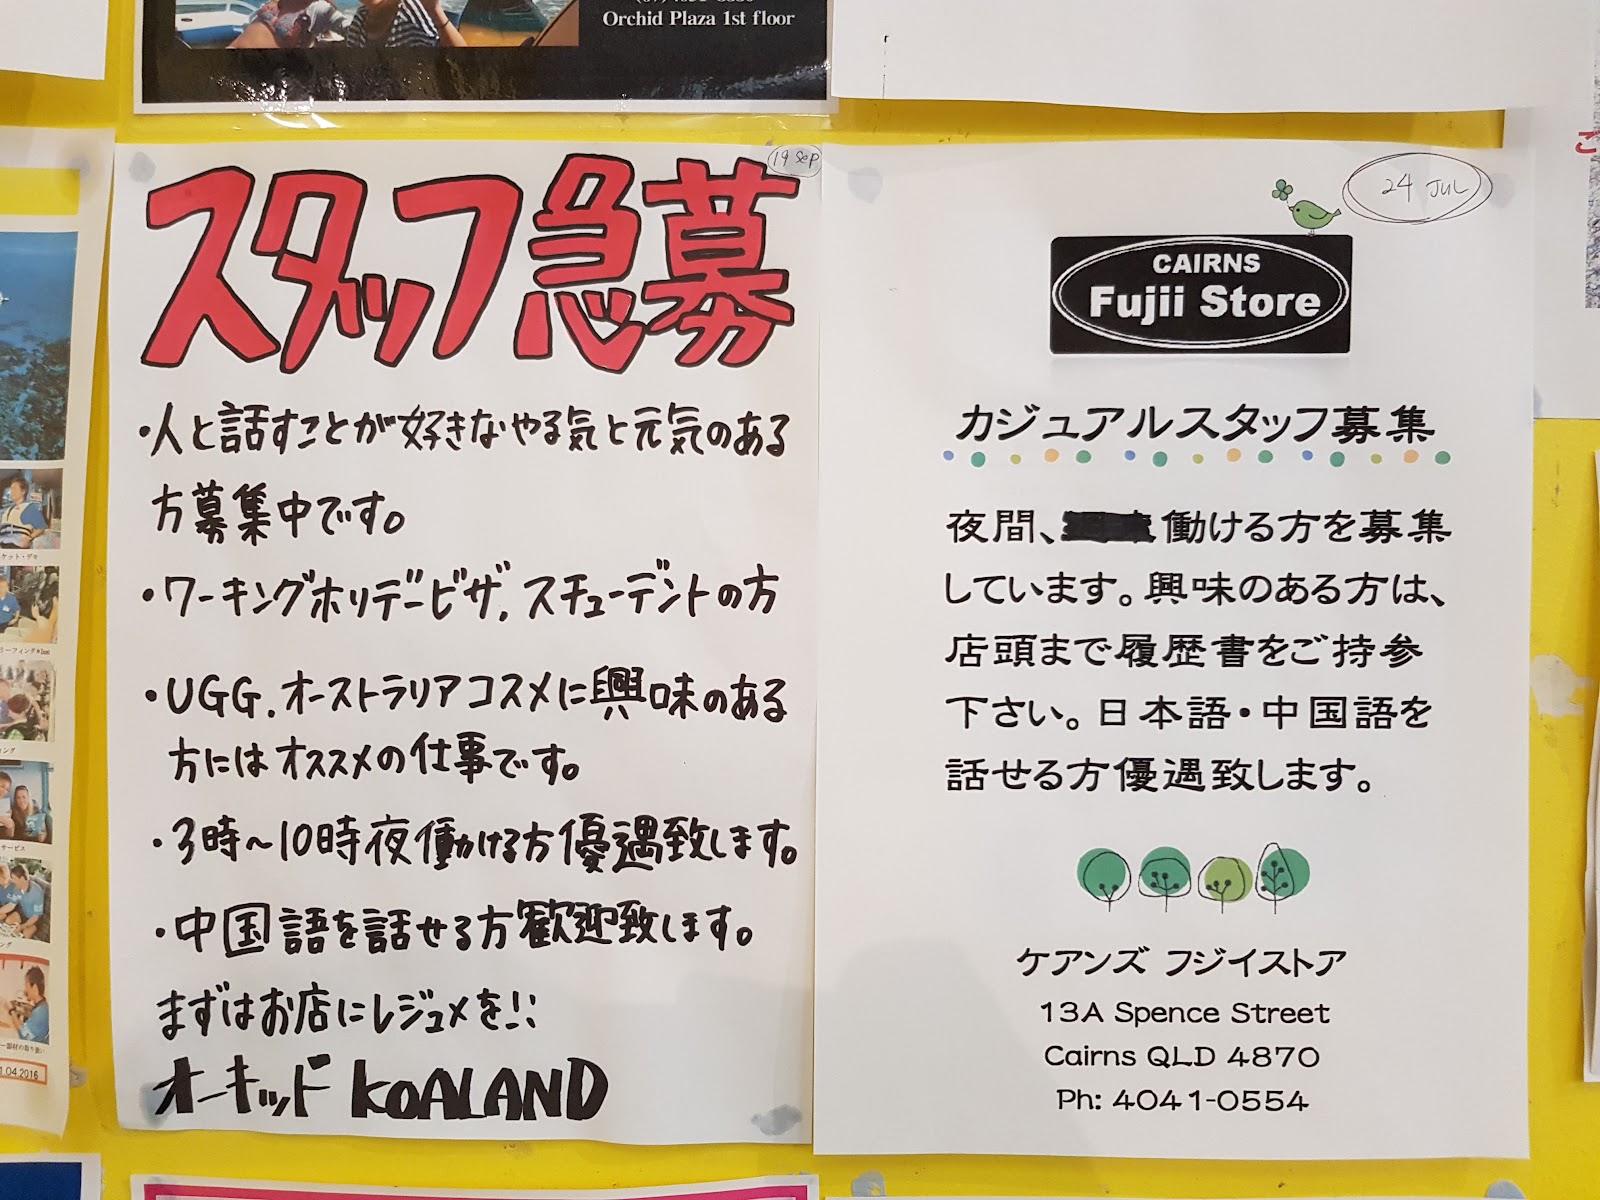 Orchid Plaza 1st floor
19 Sep
スタッフ急募
・人と話すことが好きなやる気と元気のある
方募集中です。
・ワーキングホリデービザ,スチューデントの方
・UGG,オーストラリアコスメに興味のある
方にはオススメの仕事です。
・3時~10時夜働ける方優遇致します。
・中国語を話せる方歓迎致します。
まずはお店にレジュメを!!
オーキッド KOALAND
24 JUL
CAIRNS
Fujii Store
カジュアルスタッフ募集
夜間、働ける方を募集
しています。興味のある方は、
店頭まで履歴書をご持参
下さい。日本語・中国語を
話せる方優遇致します。
ケアンズ フジイストア
13A Spence Street
Cairns QLD 4870
Ph: 4041-0554
ケット・デキ
サービス
1.04.2016
こ